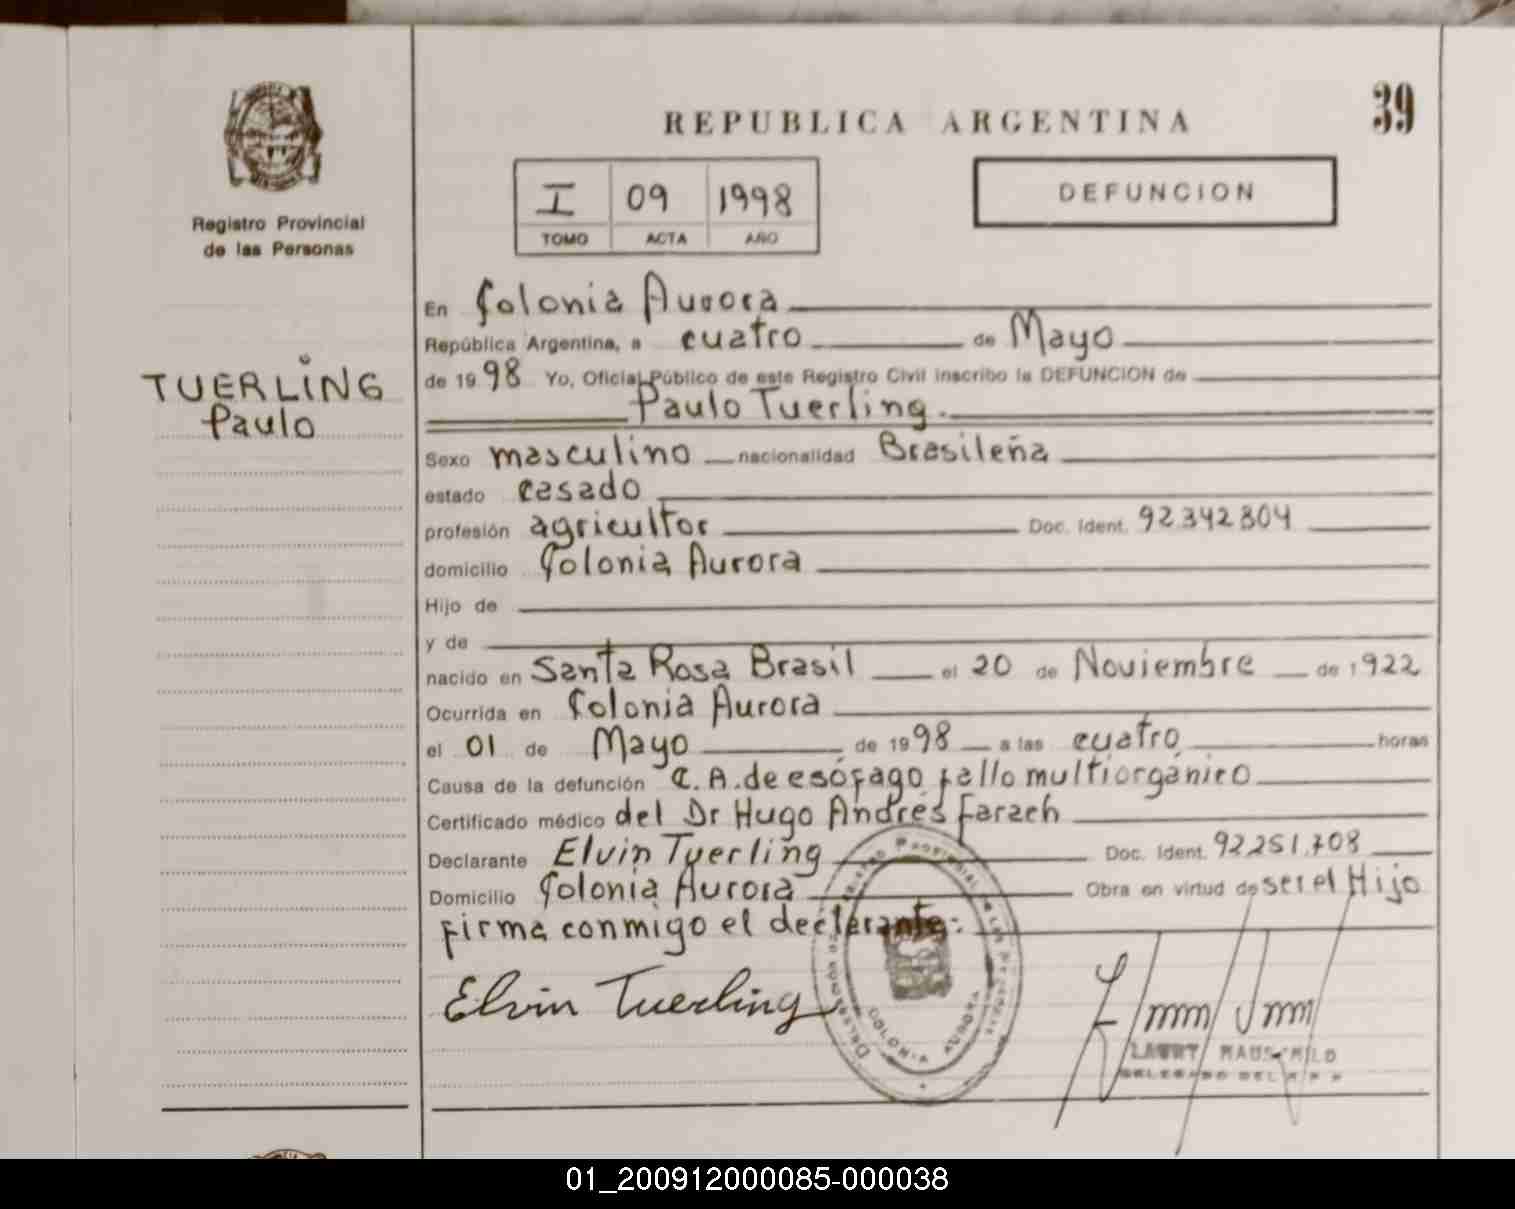 39
REPUBLICA ARGENTINA
I 09 1998
TOMO ACTA AÑO
DEFUNCION
Registro Provincial
de las Personas
TUERLING
Paulo
En Colonia Aurora
República Argentina, a cuatro de Mayo
de 1998 Yo, Oficial Público de este Registro Civil inscribo la DEFUNCION de
Paulo Tuerling.
Sexo masculino nacionalidad Brasileña
estado casado
profesión agricultor Doc. Ident. 92.342.804
domicilio Colonia Aurora
Hijo de
y de
nacido en Santa Rosa Brasil el 20 de Noviembre de 1922
Ocurrida en Colonia Aurora
el 01 de Mayo de 1998 a las cuatro horas
Causa de la defunción C.A. de esófago fallo multiorgánico
Certificado médico del Dr Hugo Andrés Farach
Declarante Elvin Tuerling Doc. Ident. 92.251.708
Domicilio Colonia Aurora Obra en virtud de ser el Hijo
firma conmigo el declarante:
Elvin Tuerling
COLONIA AURORA
01_200912000085-000038